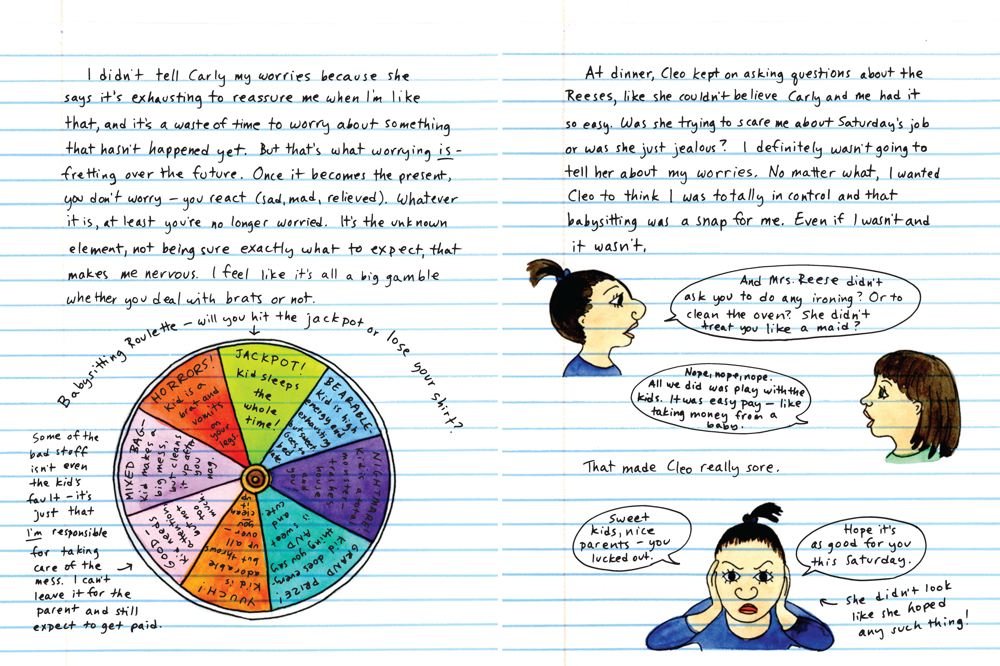 I didn't tell Carly my worries because she
says it's exhausting to reassure me when I'm like
that, and it's a waste of time to worry about something
that hasn't happened yet. But that's what worrying is -
fretting over the future. Once it becomes the present,
you don't worry - you react (sad, mad, relieved). Whatever
it is, at least you're no longer worried. It's the unknown
element, not being sure exactly what to expect, that
makes me nervous. I feel like it's all a big gamble
whether you deal with brats or not.
Babysitting Roulette - will you hit the jackpot or lose your shirt?
JACKPOT!
Kid sleeps
the
whole
time!
BEARABLE
Kid is high
energy and
exhausting
NIGHTMARE!
Kid is a total
monster -
trashes
house
and
you!
GRAND PRIZE!
Kid does every-
thing you say
AND is sweet
and
cute
YUUCH!
Kid is
adorable
but throws
up all
over - you
clean
it up
GOOD -
Kid needs
attention
but not
too
much.
MIXED BAG -
Kid makes a
big mess,
but cleans
it up after
you
nag.
HORRORS!
Kid is a
brat and
vomits
on
your
legs.
Some of the
bad stuff
isn't even
the kid's
fault - it's
just that
I'm responsible
for taking
care of the
mess. I can't
leave it for the
parent and still
expect to get paid.
At dinner, Cleo kept on asking questions about the
Reeses, like she couldn't believe Carly and me had it
so easy. Was she trying to scare me about Saturday's job
or was she just jealous? I definitely wasn't going to
tell her about my worries. No matter what, I wanted
Cleo to think I was totally in control and that
babysitting was a snap for me. Even if I wasn't and
it wasn't.
And Mrs. Reese didn't
ask you to do any ironing? Or to
clean the oven? She didn't
treat you like a maid?
Nope, nope, nope.
All we did was play with the
kids. It was easy pay - like
taking money from a
baby.
That made Cleo really sore.
Sweet
kids, nice
parents - you
lucked out.
Hope it's
as good for you
this Saturday.
She didn't look
like she hoped
any such thing!